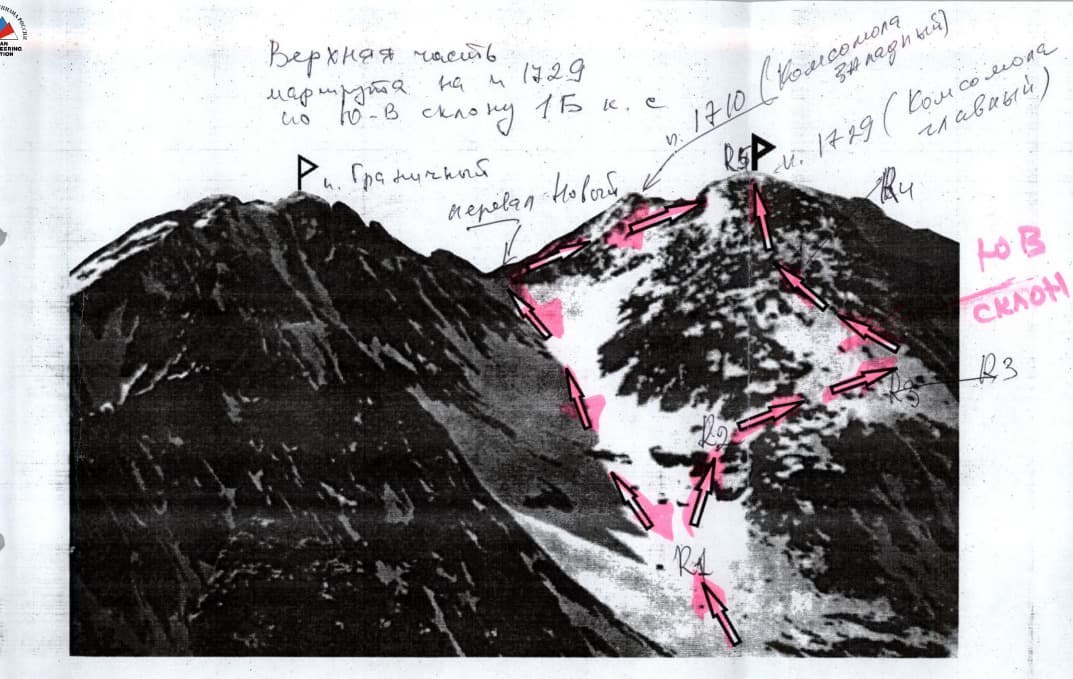 Верхная часть
маршрута на п 1729
по Ю-В склону 1Б к. с
п. 1710 (Комсомола
западный)
R5 п. 1729 (Комсомола
главный)
п. Граничный
перевал Новый
R4
ЮВ
склон
R3 R3
R2
R1